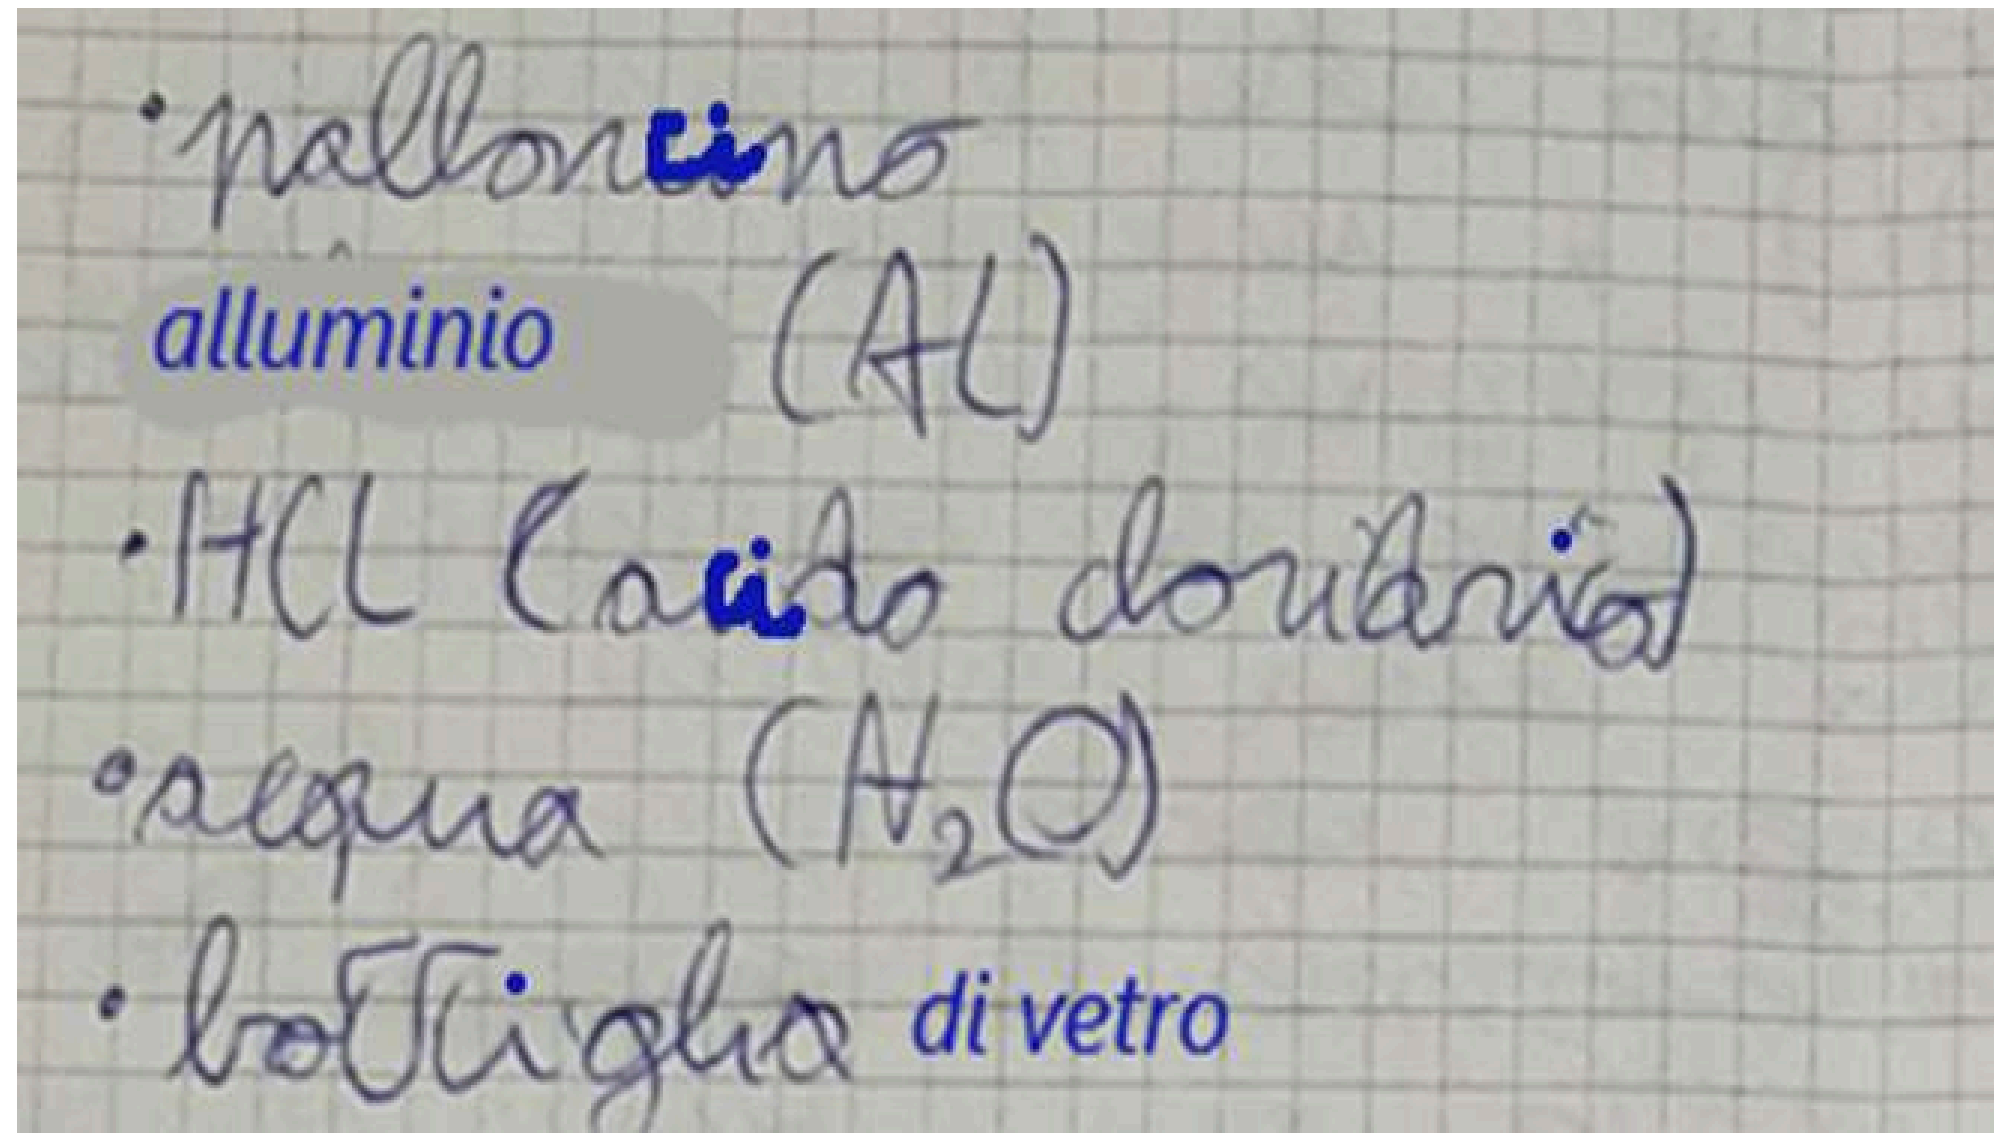 • palloncino
alluminio (AL)
• HCL (acido cloridrico)
• acqua (H₂O)
• bottiglia di vetro